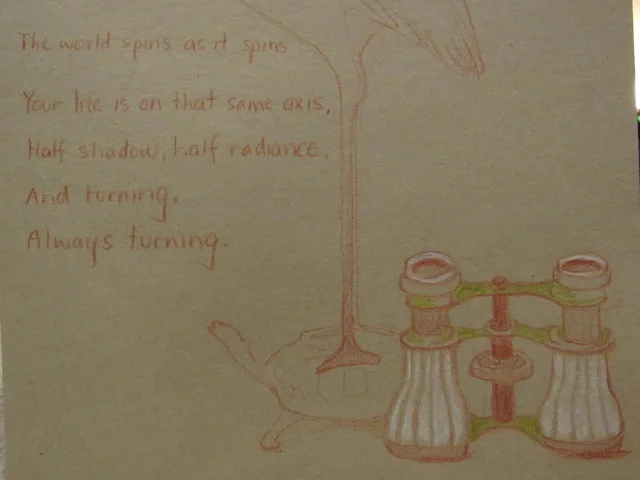 The world spins as it spins
Your life is on that same axis,
Half shadow, half radiance,
And turning,
Always turning.